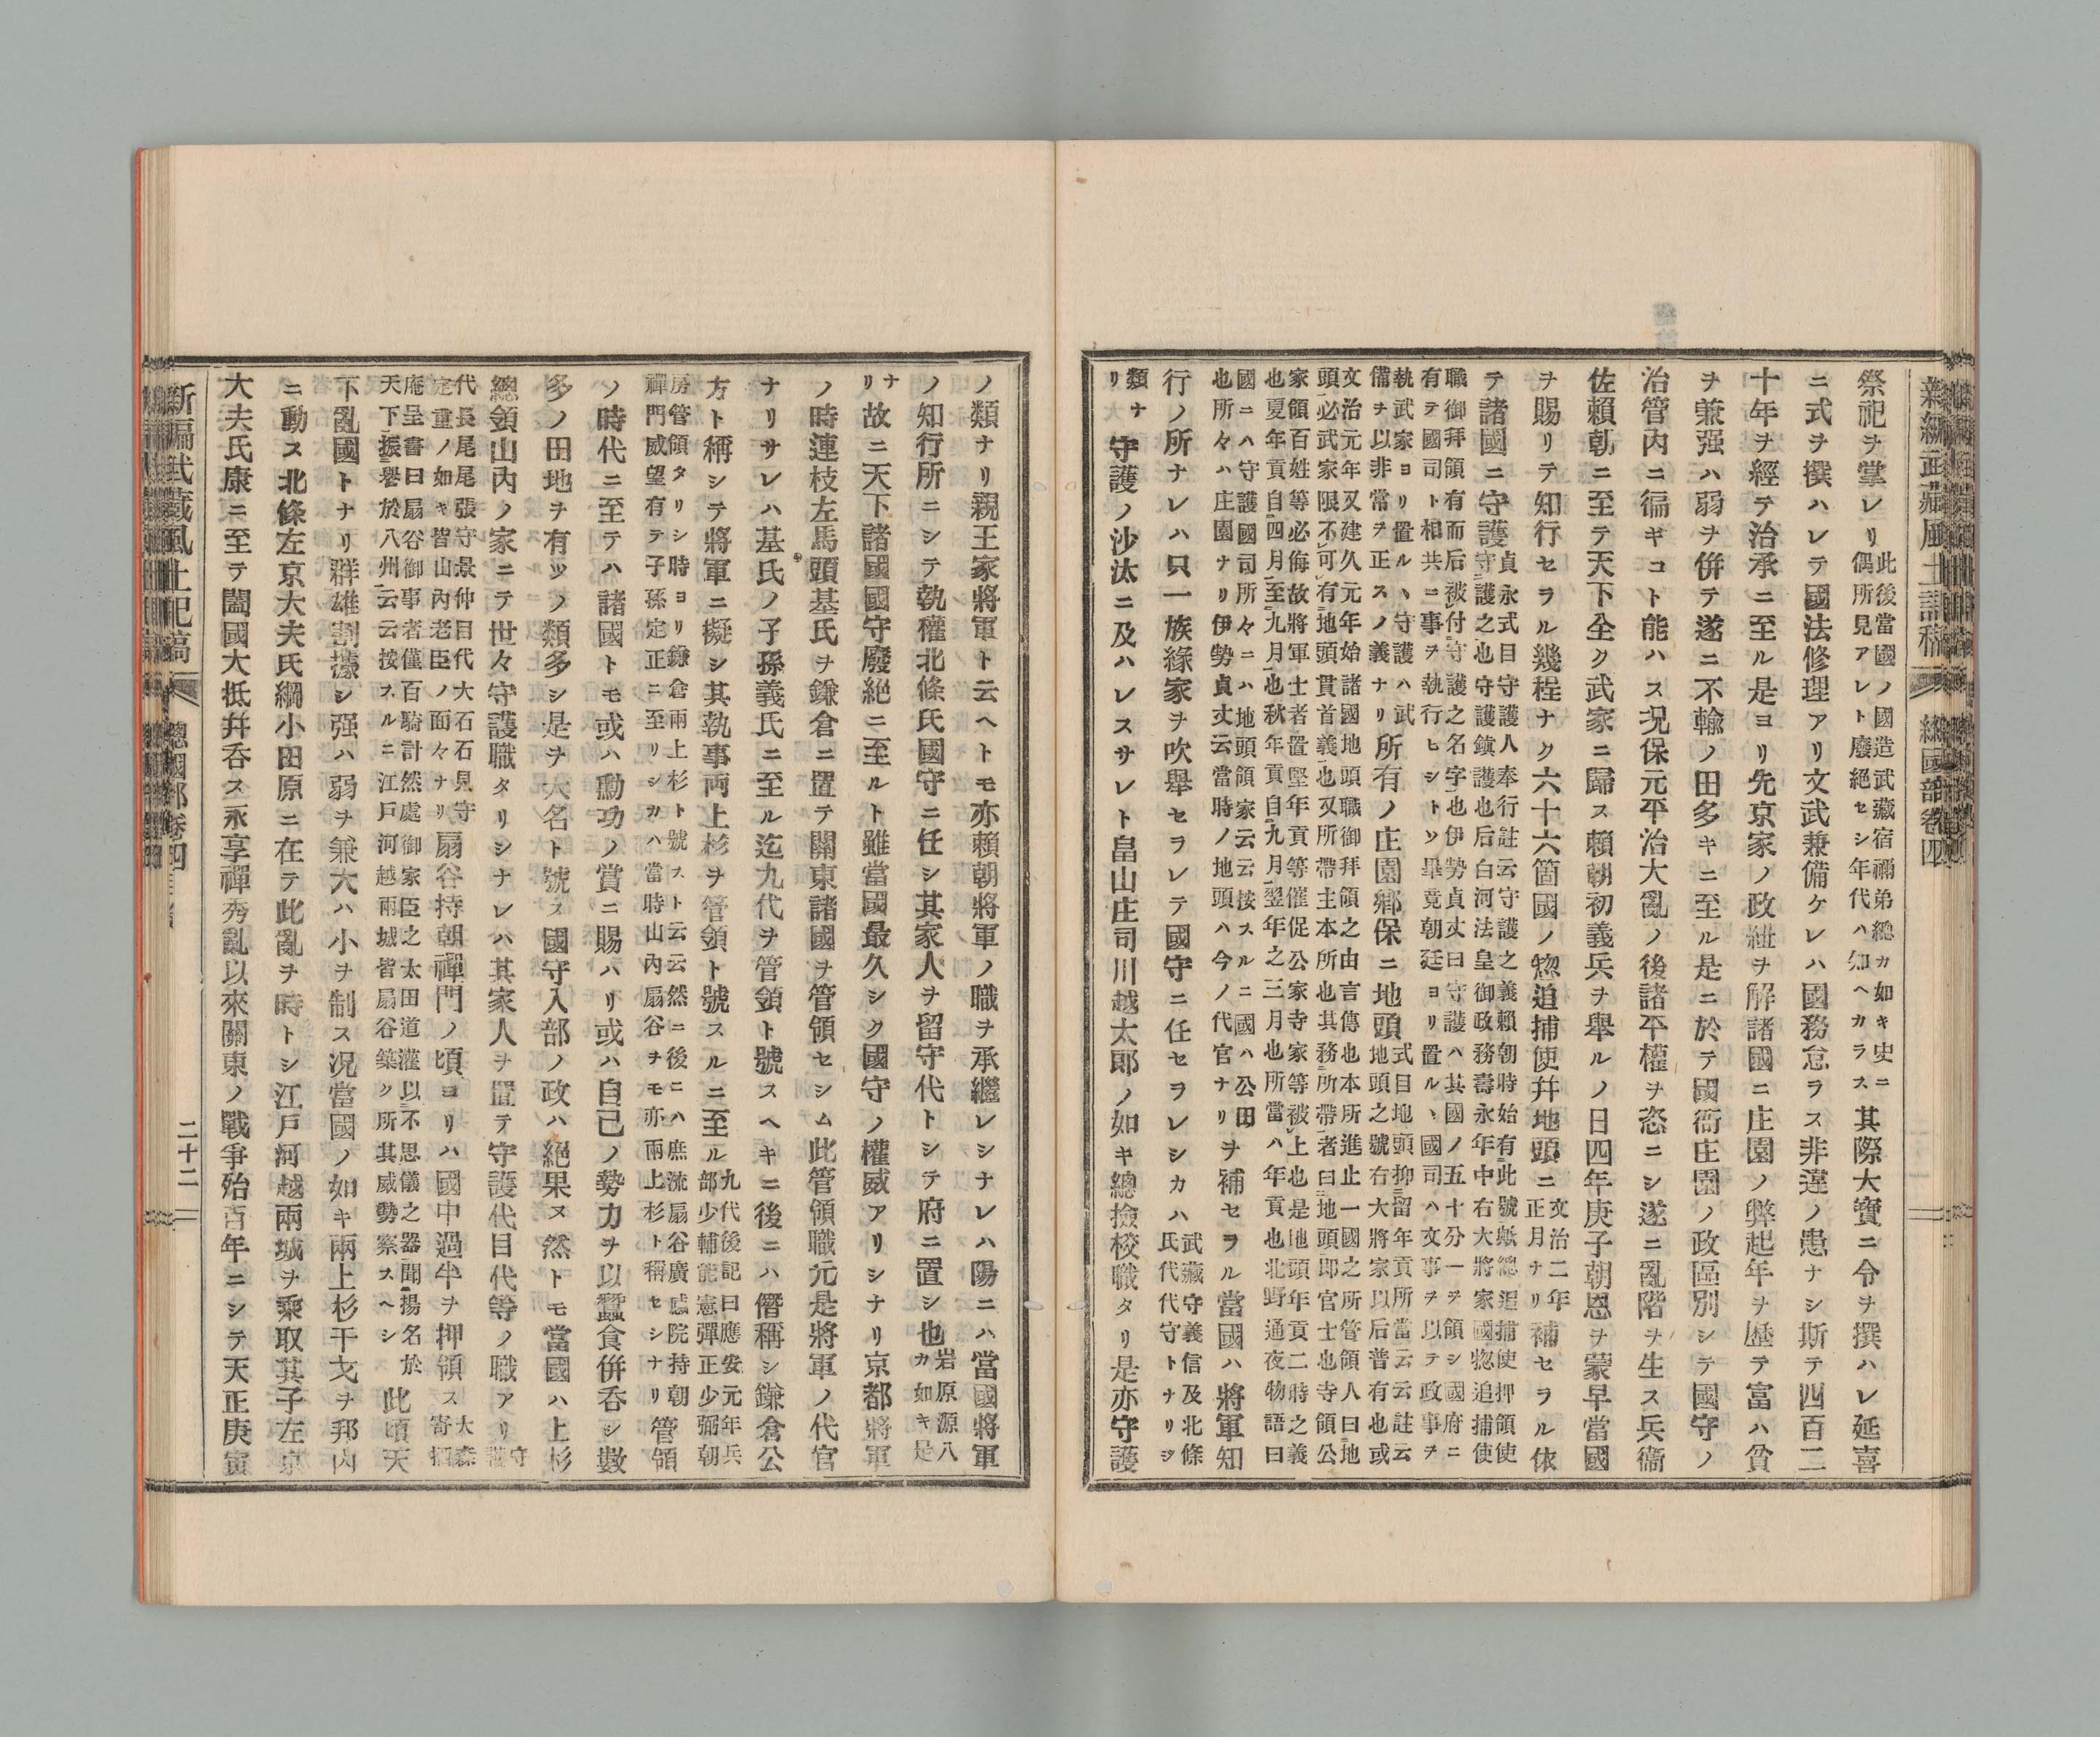 新編武藏風土記稿 總國部卷四
祭祀ヲ掌レリ此後當國ノ國造武藏宿禰弟總カ如キ史ニ偶所見アレト廢絕セシ年代ハ知ヘカラス其際大寶ニ令ヲ撰ハレ延喜
ニ式ヲ撰ハレテ國法修理アリ文武兼備ケレハ國務怠ラス非違ノ患ナシ斯テ四百二
十年ヲ經テ治承ニ至ル是ヨリ先京家ノ政紲ヲ解諸國ニ庄園ノ弊起年ヲ歷テ富ハ貧
ヲ兼强ハ弱ヲ併テ遂ニ不輸ノ田多キニ至ル是ニ於テ國衙庄園ノ政區別シテ國守ノ
治管內ニ徧キコト能ハス况保元平治大亂ノ後諸平權ヲ恣ニシ遂ニ亂階ヲ生ス兵衞
佐賴朝ニ至テ天下全ク武家ニ歸ス賴朝初義兵ヲ舉ルノ日四年庚子朝恩ヲ蒙早當國
ヲ賜リテ知行セラル幾程ナク六十六箇國ノ惣追捕使幷地頭ニ文治二年正月ナリ補セラル依
テ諸國ニ守護貞永式目守護人奉行註云守護之義賴朝時始有此號蚍總追捕使押領使守護之也守護鎭護也后白河法皇御政務壽永年中右大將家國惣追捕使
職御拜領有而后被付守護之名字也伊勢貞丈曰守護ハ其國ノ五十分一ヲ領シ國府ニ有テ國司ト相共ニ事ヲ執行ヒシトソ畢竟朝廷ヨリ置ル丶國司ハ文事ヲ以テ政事ヲ
執武家ヨリ置ル丶守護ハ武備ヲ以非常ヲ正スノ義ナリ所有ノ庄園鄕保ニ地頭式目地頭抑留年貢所當云云註云地頭之號右大將家以后普有也或
文治元年又建久元年始諸國地頭職御拜領之由言傳也本所進止一國之所管領人曰地頭必武家限不可有地頭貫首義也又所帶主本所也其務所帶者曰地頭郎官士也寺領公
家領百姓等必侮故將軍士者置堅年貢等催促公家寺家等被上也是地頭年貢二時之義也夏年貢自四月至九月也秋年貢自九月翌年之三月也所當ハ年貢也北野通夜物語曰
國ニハ守護國司所々ニハ地頭領家云云按スルニ國ハ公田也所々ハ庄園ナリ伊勢貞丈云當時ノ地頭ハ今ノ代官ナリヲ補セラル當國ハ將軍知
行ノ所ナレハ只一族緣家ヲ吹舉セラレテ國守ニ任セラレシカハ武藏守義信及北條氏代代守トナリシ
類ナリ守護ノ沙汰ニ及ハレスサレト畠山庄司川越太郎ノ如キ總撿校職タリ是亦守護
ノ類ナリ親王家將軍ト云ヘトモ亦賴朝將軍ノ職ヲ承繼レシナレハ陽ニハ當國將軍
ノ知行所ニシテ執權北條氏國守ニ任シ其家人ヲ留守代トシテ府ニ置シ也岩原源八カ如キ是
ナリ故ニ天下諸國國守廢絕ニ至ルト雖當國最久シク國守ノ權威アリシナリ京都將軍
ノ時連枝左馬頭基氏ヲ鎌倉ニ置テ關東諸國ヲ管領セシム此管領職元是將軍ノ代官
ナリサレハ基氏ノ子孫義氏ニ至ル迄九代ヲ管領ト號スヘキニ後ニハ僭稱シ鎌倉公
方ト稱シテ將軍ニ擬シ其執事両上杉ヲ管領ト號スルニ至ル九代後記曰應安元年兵部少輔能憲彈正少弼朝
房管領タリシ時ヨリ鎌倉兩上杉ト號スト云云然ニ後ニハ庶流扇谷廣感院持朝禪門威望有テ子孫定正ニ至リシカハ當時山內扇谷ヲモ亦兩上杉ト稱セシナリ管領
ノ時代ニ至テハ諸國トモ或ハ勳功ノ賞ニ賜ハリ或ハ自己ノ勢力ヲ以蠶食併呑シ數
多ノ田地ヲ有ツノ類多シ是ヲ大名ト號ス國守入部ノ政ハ絕果ヌ然トモ當國ハ上杉
總領山內ノ家ニテ世々守護職タリシナレハ其家人ヲ置テ守護代目代等ノ職アリ守護
代長尾尾張守景仲目代大石石見守定重ノ如キ皆山內老臣ノ面々ナリ扇谷持朝禪門ノ頃ヨリハ國中過半ヲ押領ス大森寄栖
庵呈書曰扇谷御事者僅百騎計然處御家臣之太田道灌以不思儀之器聞揚名於天下振譽於八州云云按スルニ江戸河越兩城皆扇谷築ク所其威勢察スヘシ此頃天
下亂國トナリ群雄割據シ强ハ弱ヲ兼大ハ小ヲ制ス况當國ノ如キ兩上杉干戈ヲ邦內
ニ動ス北條左京大夫氏綱小田原ニ在テ此亂ヲ時トシ江戸河越兩城ヲ乘取其子左京
大夫氏康ニ至テ闔國大抵幷呑ス永享禪秀亂以來關東ノ戰爭殆百年ニシテ天正庚寅
新編武藏風土記稿 總國部卷四 二十二